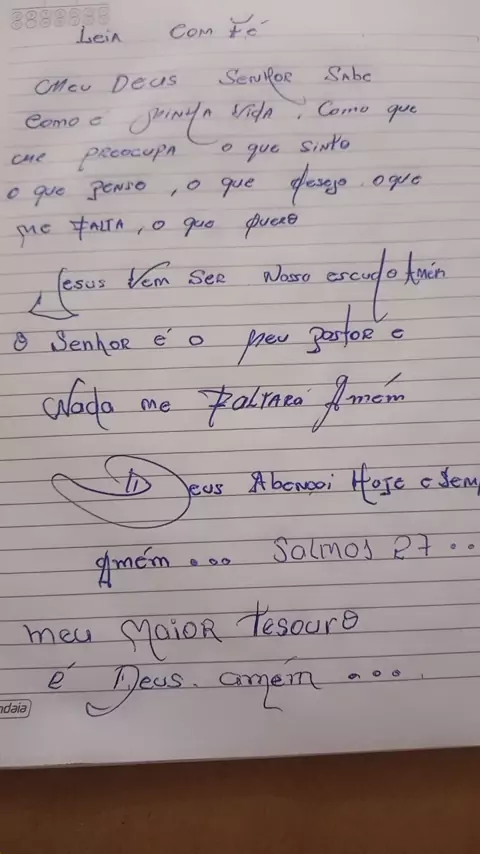 Leia com Fé
Meu Deus Senhor Sabe
Como é Minha Vida, Como que
me preocupa o que sinto
o que penso, o que desejo, o que
me Falta, o que quero
Jesus Vem Ser Nosso escudo Amém
O Senhor é o Meu pastor e
Nada me Faltará Amém
Deus Abençoi Hoje e Sem
Amém ... Salmos 27 ..
meu Maior Tesouro
é Deus. amém ....
ndaia